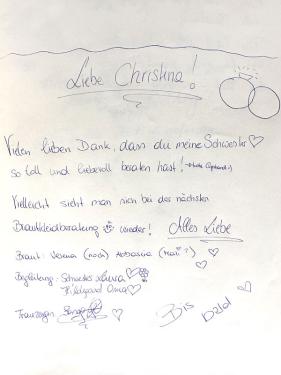 Liebe Christina!
Vielen lieben Dank, dass du meine Schwester
so toll und liebevoll beraten hast!
Vielleicht sieht man sich bei der nächsten
Brautkleidberatung wieder! Alles Liebe
Braut: Verena (noch)
Begleitung: Schwester Laura
Hildegard Oma
Trauzeugin
Bis Bald